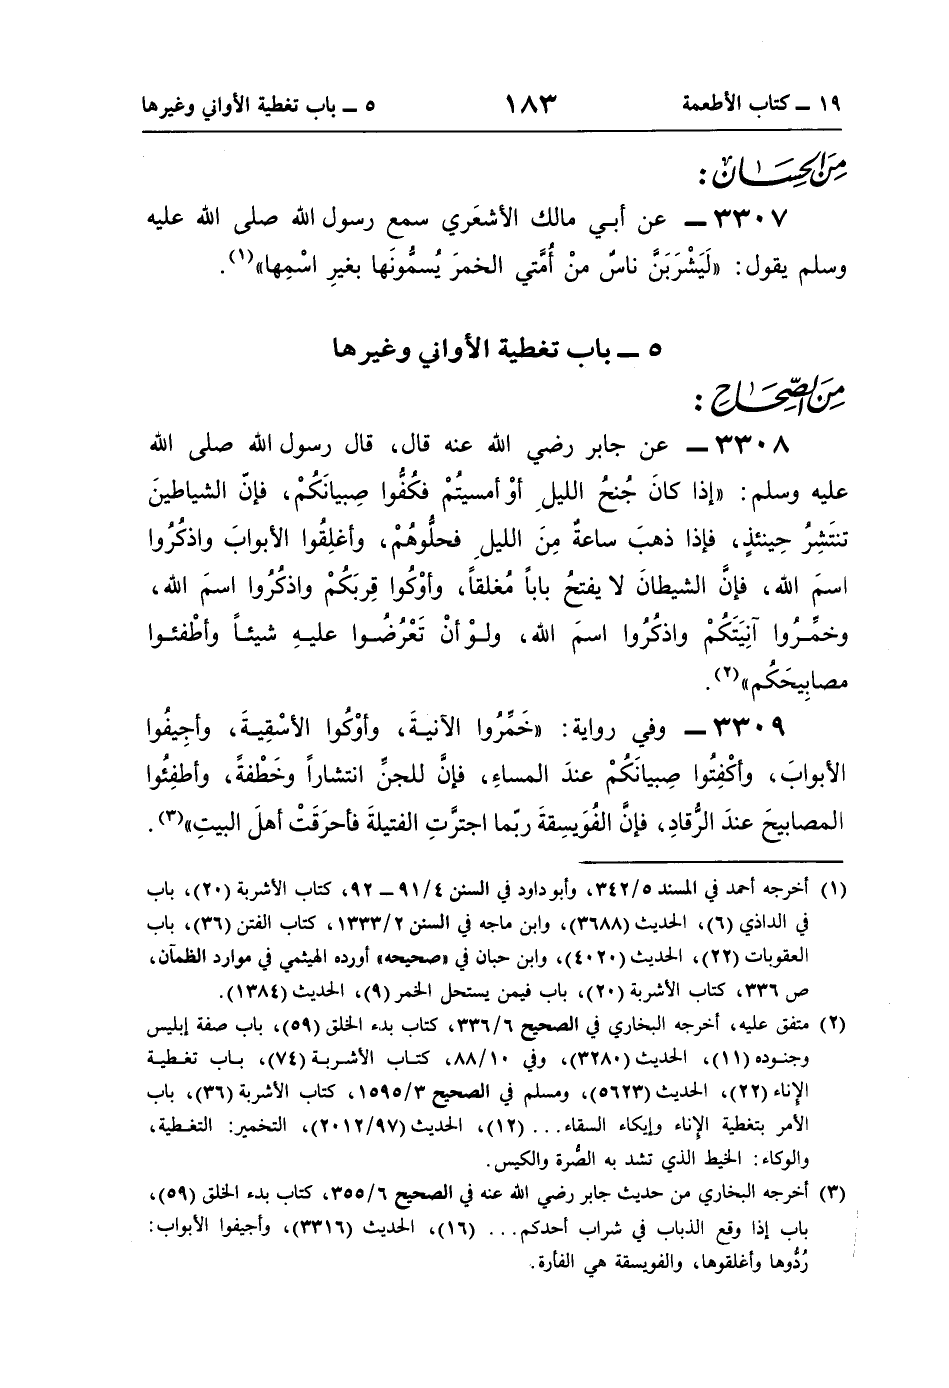 ١٩ ــ كتاب الأطعمة ١٨٣ ٥ ــ باب تغطية الأواني وغيرها
مِنَ الحِسَان:
٣٣٠٧ ــ عن أبي مالك الأشعَري سمع رسول الله صلى الله عليه
وسلم يقول: «لَيَشْرَبَنَّ ناسٌ منْ أُمَّتي الخمرَ يُسمُّونَها بغيرِ اسْمِها»(١).
٥ ــ باب تغطية الأواني وغيرها
مِنَ الصِّحَاحِ:
٣٣٠٨ ــ عن جابر رضي الله عنه قال، قال رسول الله صلى الله
عليه وسلم: «إذا كانَ جُنحُ الليلِ أوْ أمسيتُمْ فكُفُّوا صِبيانَكُمْ، فإنّ الشياطينَ
تنتَشِرُ حِينئذٍ، فإذا ذهبَ ساعةٌ مِنَ الليلِ فحلُّوهُمْ، وأغلِقُوا الأبوابَ واذكُرُوا
اسمَ الله، فإنَّ الشيطانَ لا يفتحُ باباً مُغلقاً، وأوْكُوا قِربَكُمْ واذكُرُوا اسمَ الله،
وخمِّرُوا آنِيَتَكُمْ واذكُرُوا اسمَ الله، ولوْ أنْ تَعْرُضُوا عليهِ شيئاً وأطْفئوا
مصابِيحَكُم»(٢).
٣٣٠٩ ــ وفي رواية: «خَمِّرُوا الآنيةَ، وأوْكُوا الأسْقِيةَ، وأجِيفُوا
الأبوابَ، وأكْفِتُوا صِبيانَكُمْ عندَ المساءِ، فإنَّ للجنِّ انتشاراً وخَطْفةً، وأطفِئُوا
المصابيحَ عندَ الرُّقادِ، فإنَّ الفُوَيسِقةَ ربّما اجترَّتِ الفتيلةَ فأحرَقَتْ أهلَ البيتِ»(٣).
(١) أخرجه أحمد في المسند ٣٤٢/٥، وأبو داود في السنن ٩١/٤ ــ ٩٢، كتاب الأشربة (٢٠)، باب
في الداذي (٦)، الحديث (٣٦٨٨)، وابن ماجه في السنن ١٣٣٣/٢، كتاب الفتن (٣٦)، باب
العقوبات (٢٢)، الحديث (٤٠٢٠)، وابن حبان في «صحيحه» أورده الهيثمي في موارد الظمآن،
ص ٣٣٦، كتاب الأشربة (٢٠)، باب فيمن يستحل الخمر (٩)، الحديث (١٣٨٤).
(٢) متفق عليه، أخرجه البخاري في الصحيح ٣٣٦/٦، كتاب بدء الخلق (٥٩)، باب صفة إبليس
وجنوده (١١)، الحديث (٣٢٨٠)، وفي ٨٨/١٠، كتاب الأشربة (٧٤)، باب تغطية
الإناء (٢٢)، الحديث (٥٦٢٣)، ومسلم في الصحيح ١٥٩٥/٣، كتاب الأشربة (٣٦)، باب
الأمر بتغطية الإناء وإيكاء السقاء... (١٢)، الحديث (٢٠١٢/٩٧)، التخمير: التغطية،
والوكاء: الخيط الذي تشد به الصُّرة والكيس.
(٣) أخرجه البخاري من حديث جابر رضي الله عنه في الصحيح ٣٥٥/٦، كتاب بدء الخلق (٥٩)،
باب إذا وقع الذباب في شراب أحدكم... (١٦)، الحديث (٣٣١٦)، وأجيفوا الأبواب:
رُدُّوها وأغلقوها، والفويسقة هي الفأرة.